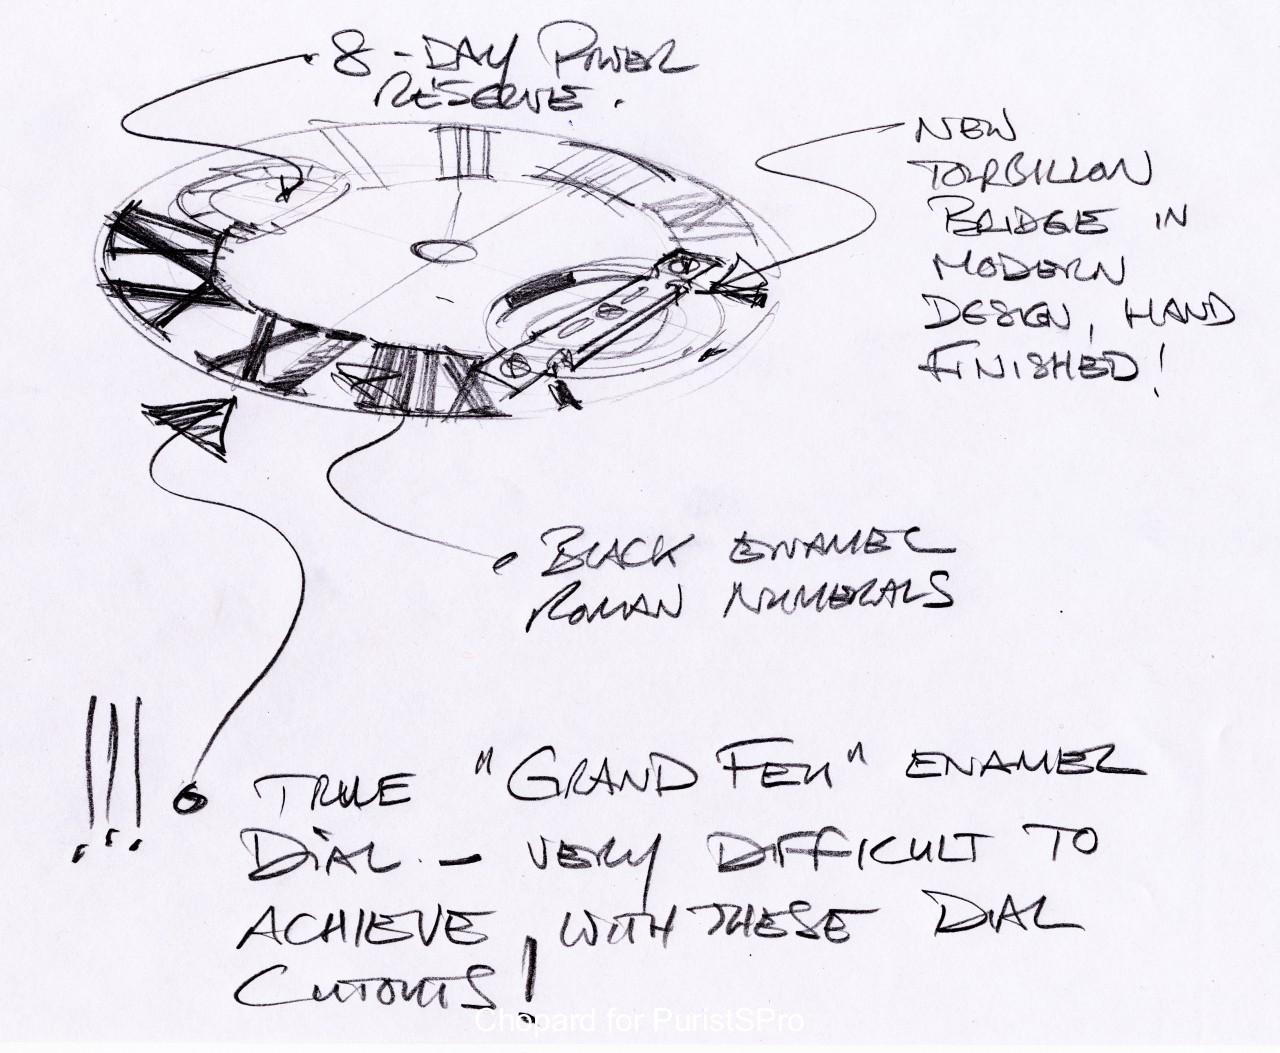 8-DAY POWER
RESERVE.
NEW
TOURBILLON
BRIDGE IN
MODERN
DESIGN, HAND
FINISHED!
BLACK ENAMEL
ROMAN NUMERALS
!!! TRUE "GRAND FEU" ENAMEL
DIAL - VERY DIFFICULT TO
ACHIEVE, WITH THESE DIAL
CUTOUTS!
Chopard for PuristSPro